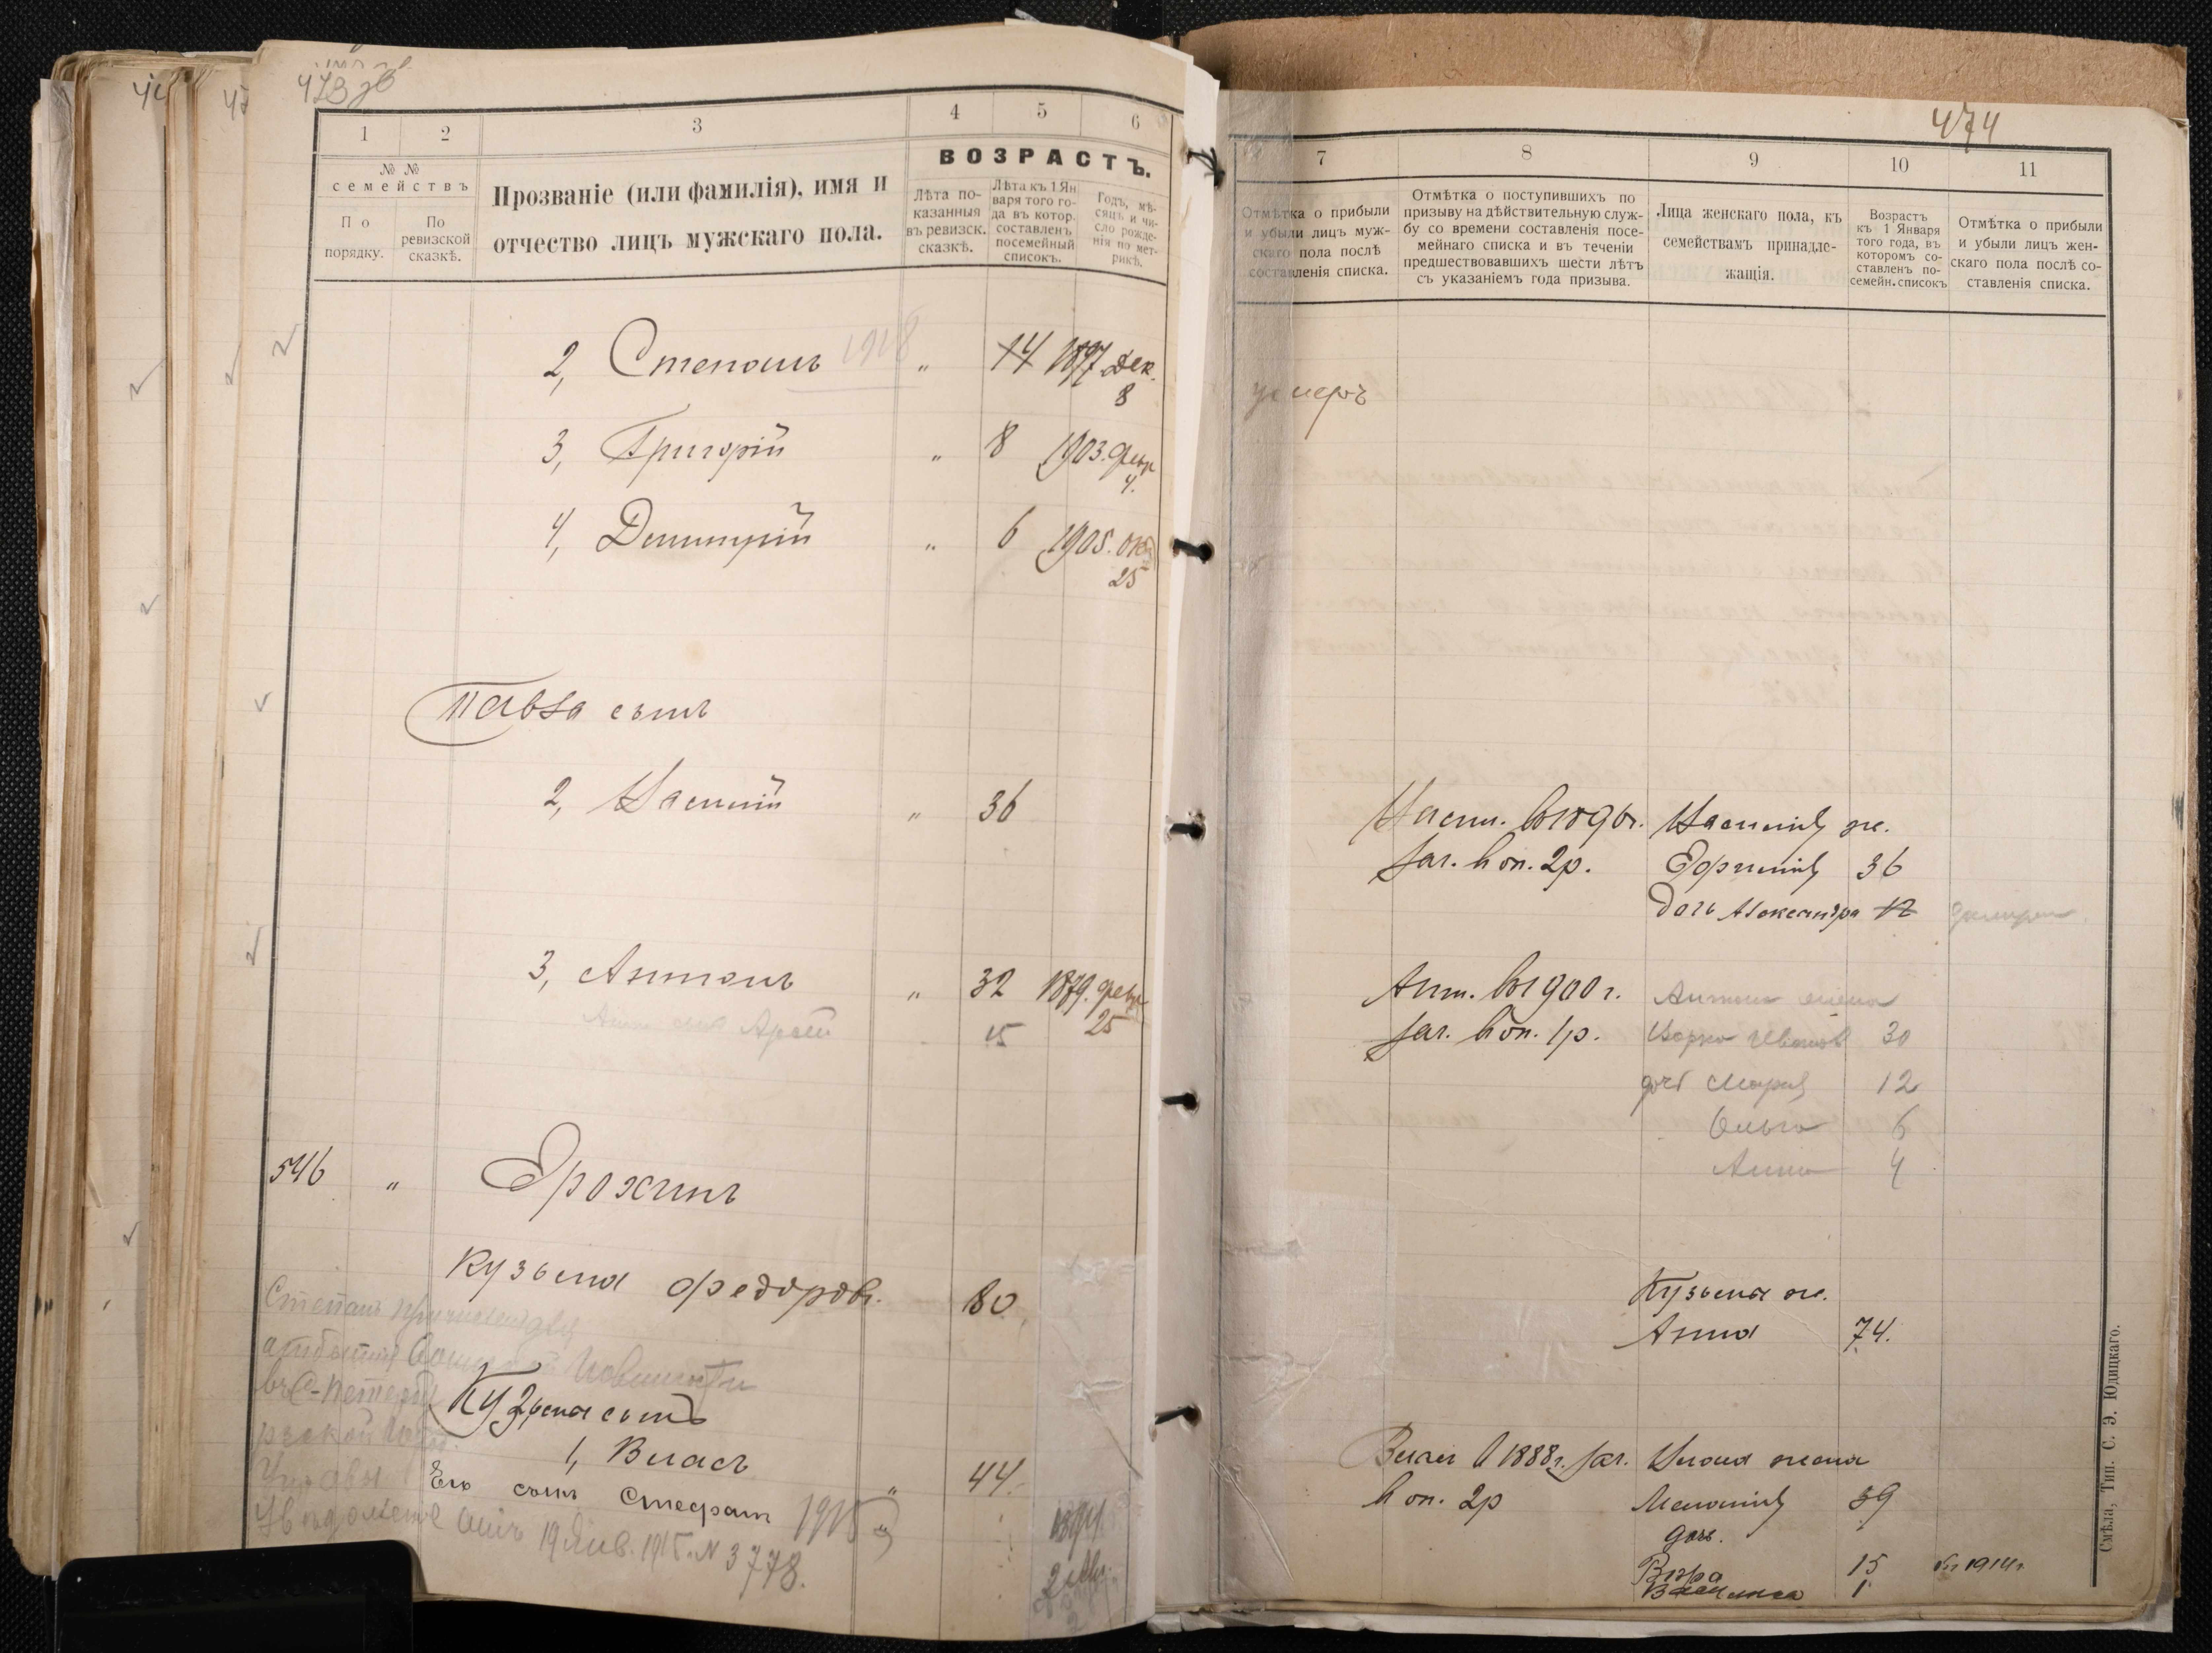 473 об
1
2
3
4
5
6
№ №
семействъ
По
порядку.
По
ревизской
сказкѣ.
Прозваніе (или фамилія), имя и
отчество лицъ мужскаго пола.
ВОЗРАСТЪ.
Лѣта по-
казанныя
въ ревизск.
сказкѣ.
Лѣта къ 1 Ян
варя того го-
да въ котор.
составленъ
посемейный
списокъ.
Годъ, мѣ-
сяцъ и чи-
сло рожде-
нія по мет-
рикѣ.
2, Степанъ 1918 " 14 1897 дек.
8
3, Григорій " 8 1903. фев
4.
4, Димитрій " 6 1905. окт
25
Павла сынъ
2, Василій " 36
3, Антонъ " 32 1879. февр
25
15
546 " Ерохинъ
Кузьма Федоровъ. 80
Степанъ
Кузьма сынъ
1, Власъ " 44.
Его сынъ Стефан 1915
19 Янв. 1915. N 3778.
1894
474
7
8
9
10
11
Отмѣтка о прибыли
и убыли лицъ муж-
скаго пола послѣ
составленія списка.
Отмѣтка о поступившихъ по
призыву на дѣйствительную служ-
бу со времени составленія посе-
мейнаго списка и въ теченіи
предшествовавшихъ шести лѣтъ
съ указаніемъ года призыва.
Лица женскаго пола, къ
семействамъ принадле-
жащія.
Возрастъ
къ 1 Января
того года, въ
котором со-
ставленъ по-
семейн. списокъ
Отмѣтка о прибыли
и убыли лицъ жен-
скаго пола послѣ со-
ставленія списка.
умеръ
Васил. въ 189 г. Василія ж.
зач. в оп. 2р. 36
дочь Александра 12
Ант. въ 1900 г. Антона жена
зач. в оп. 1р. Варка Иванов 30
доч Марія 12
Ольга 6
Анна 4
Кузьма ж.
Анна 74.
Власъ в 1888 г. зач. Власа жена
в оп. 2р Меланія 39
дочь.
Вѣра 15 въ 1914 г
Василиса 1
Смѣла, Тип. С. Э. Юдицкаго.